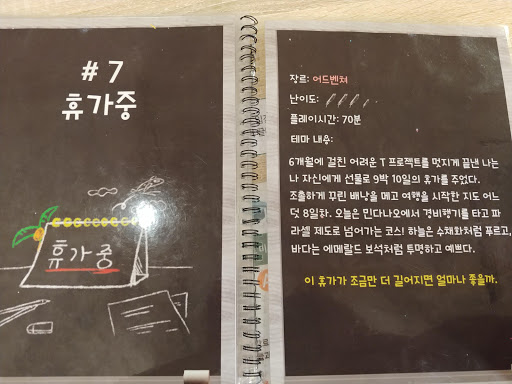 #7
휴가중
휴가중
장르: 어드벤쳐
난이도:
플레이시간: 70분
테마 내용:
6개월에 걸친 어려운 T 프로젝트를 멋지게 끝낸 나는
나 자신에게 선물로 9박 10일의 휴가를 주었다.
조촐하게 꾸린 배낭을 메고 여행을 시작한 지도 어느
덧 8일차. 오늘은 민다나오에서 경비행기를 타고 파
라셀 제도로 넘어가는 코스! 하늘은 수채화처럼 푸르고,
바다는 에메랄드 보석처럼 투명하고 예쁘다.
이 휴가가 조금만 더 길어지면 얼마나 좋을까.